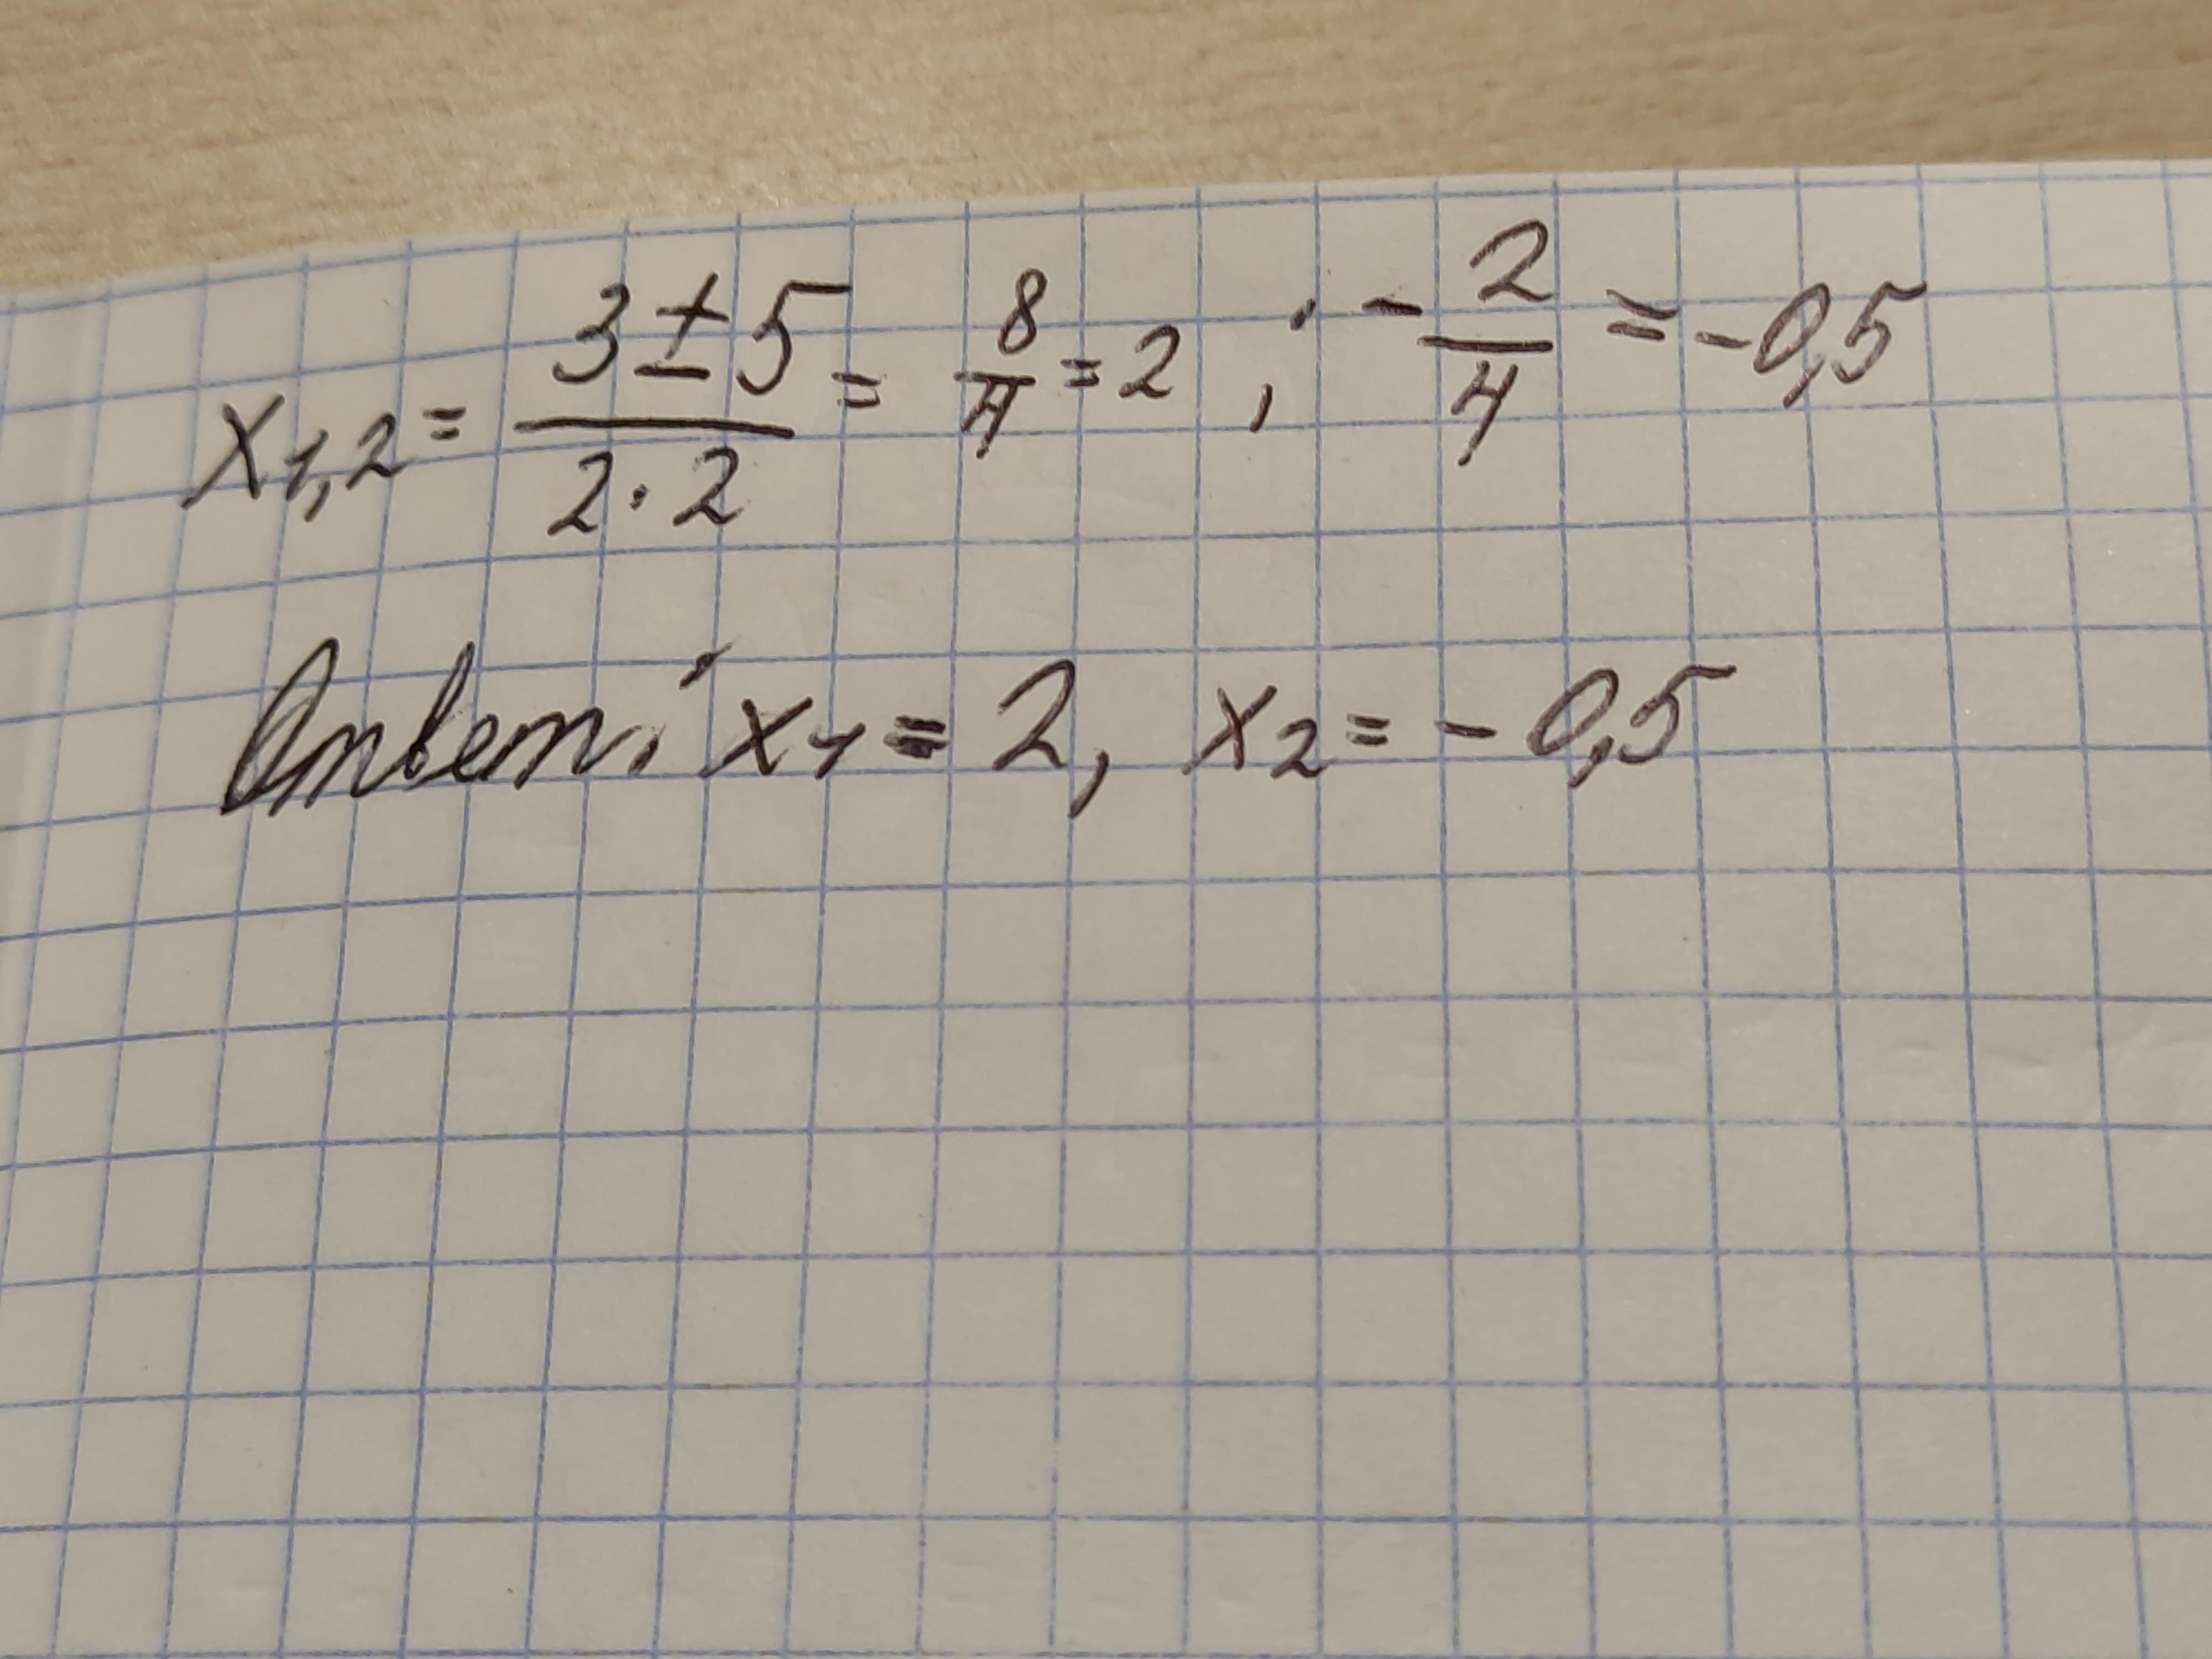 x₁,₂ = (3 ± 5)/(2 · 2) = 8/4 = 2 ; -2/4 = -0,5
Ответ: x₁ = 2, x₂ = -0,5